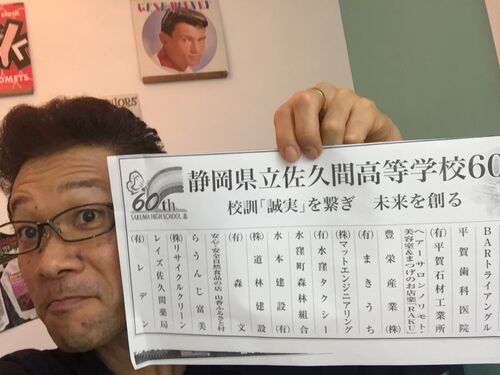 60th
SAKUMA HIGH SCHOOL
静岡県立佐久間高等学校60
校訓「誠実」を繋ぎ 未来を創る
BARトライアングル
平賀歯科医院
(有)平賀石材工業所
ヘアーサロンノリモト・
美容室&まつげのお店楽「RAKU」
豊栄産業(株)
(有)まきうち
(株)マットエンジニアリング
(有)水窪タクシー
水窪町森林組合
水本建設(有)
(株)道林建設
(有)森文
安心・安全自然食品の店 山香ふるさと村
らうんじ富美
(株)リサイクルクリーン
レイズ佐久間薬局
(有)トーデン